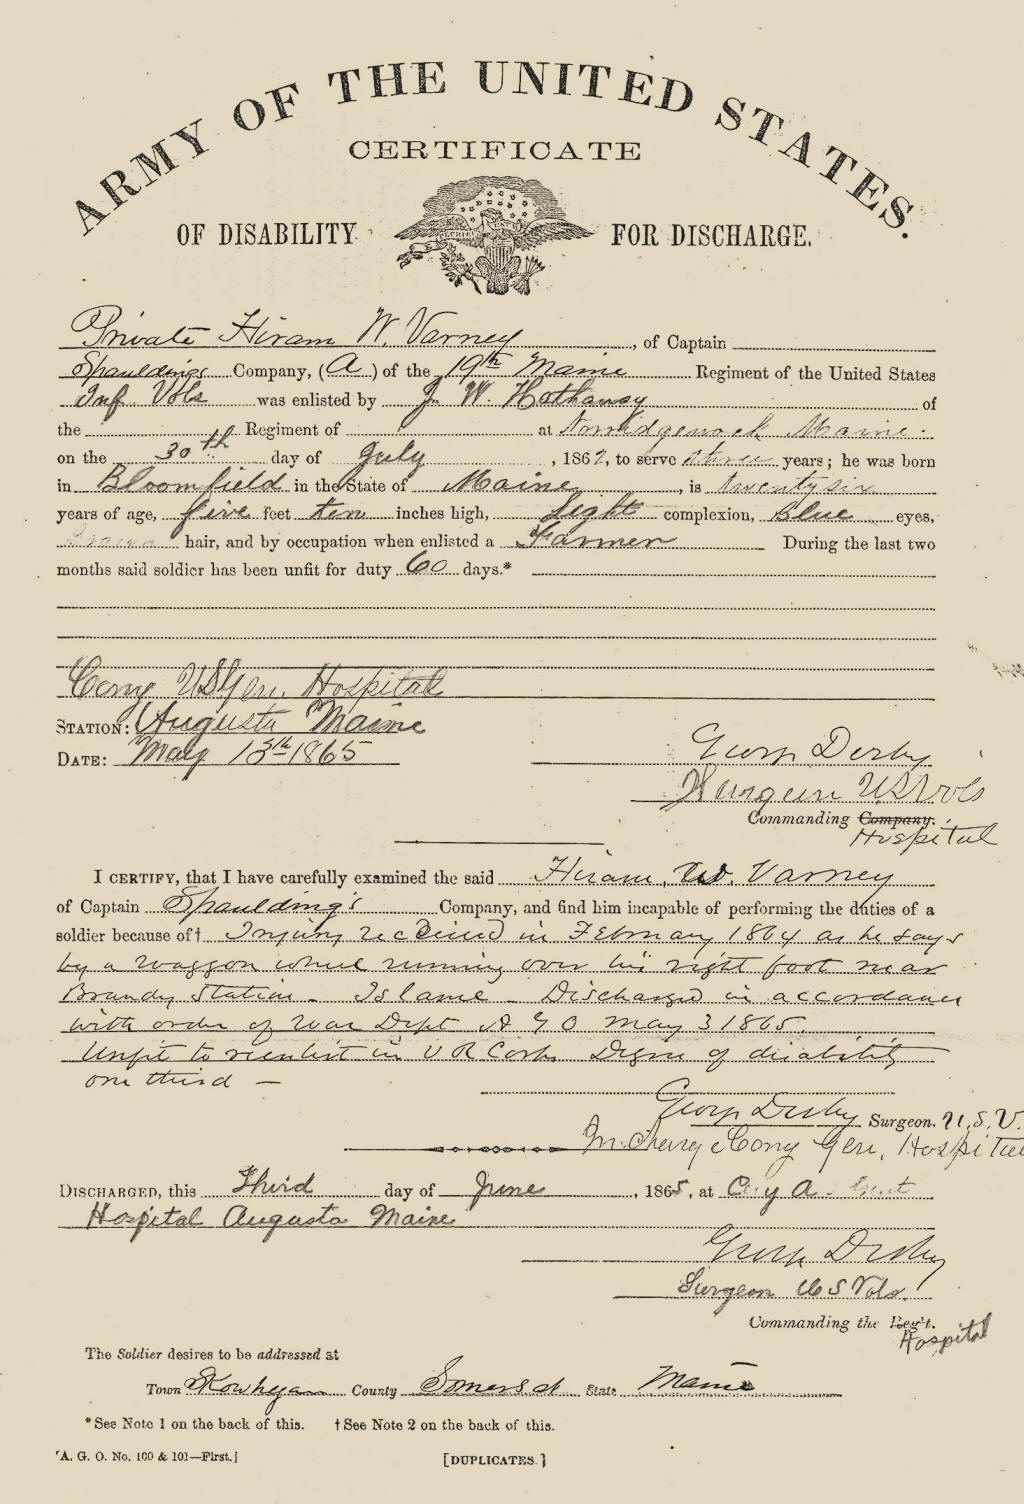 ARMY OF THE UNITED STATES.
CERTIFICATE
OF DISABILITY FOR DISCHARGE.
Private Hiram W. Varney, of Captain
Spauldings Company, (A) of the 19th Maine Regiment of the United States
Inf Vols was enlisted by J. W. Hathaway of
the Regiment of at Norridgewock Maine.
on the 30th day of July, 1862, to serve three years; he was born
in Bloomfield in the State of Maine, is twenty six
years of age, five feet ten inches high, Light complexion, Blue eyes,
Brown hair, and by occupation when enlisted a Farmer During the last two
months said soldier has been unfit for duty 60 days.*
Cony U S Gen. Hospital
STATION: Augusta Maine
DATE: May 15th 1865
Geo Derby
Surgeon U S Vols
Commanding Company.
Hospital
I CERTIFY, that I have carefully examined the said Hiram, W. Varney
of Captain Spaulding's Company, and find him incapable of performing the duties of a
soldier because of† Injury received in February 1864 as he says
by a waggon wheel running over his right foot near
Brandy Station - Is lame - Discharged in accordance
with order of War Dept A G O May 3 1865.
Unfit to reenlist in V R Corps Degree of disability
one third -
Geo Derby Surgeon. U.S.V.
In charge Cony Gen, Hospital
DISCHARGED, this Third day of June, 1865, at Cony
Hospital Augusta Maine
Geo Derby
Surgeon U S Vols.
Commanding the Reg't.
Hospital
The Soldier desires to be addressed at
Town Skowhegan County Somerset State Maine
*See Note 1 on the back of this. †See Note 2 on the back of this.
[A. G. O. No. 100 & 101—First.]
[DUPLICATES.]